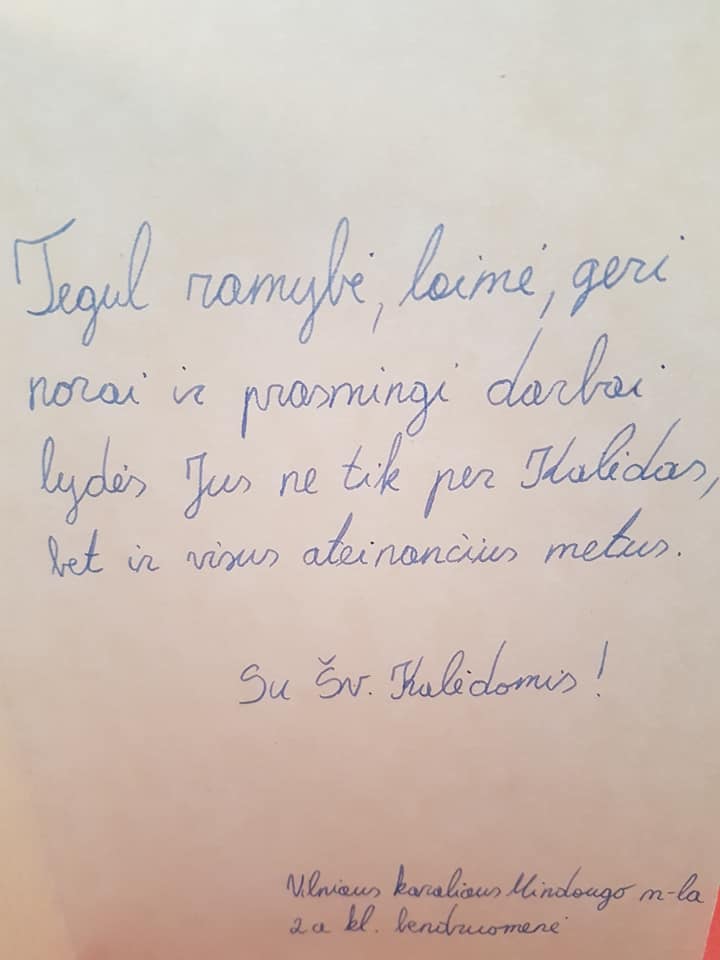 Tegul ramybė, laimė, geri
norai ir prasmingi darbai
lydės Jus ne tik per Kalėdas,
bet ir visus ateinančius metus.
Su Šv. Kalėdomis!
Vilniaus karaliaus Mindaugo m-la
2a kl. bendruomenė